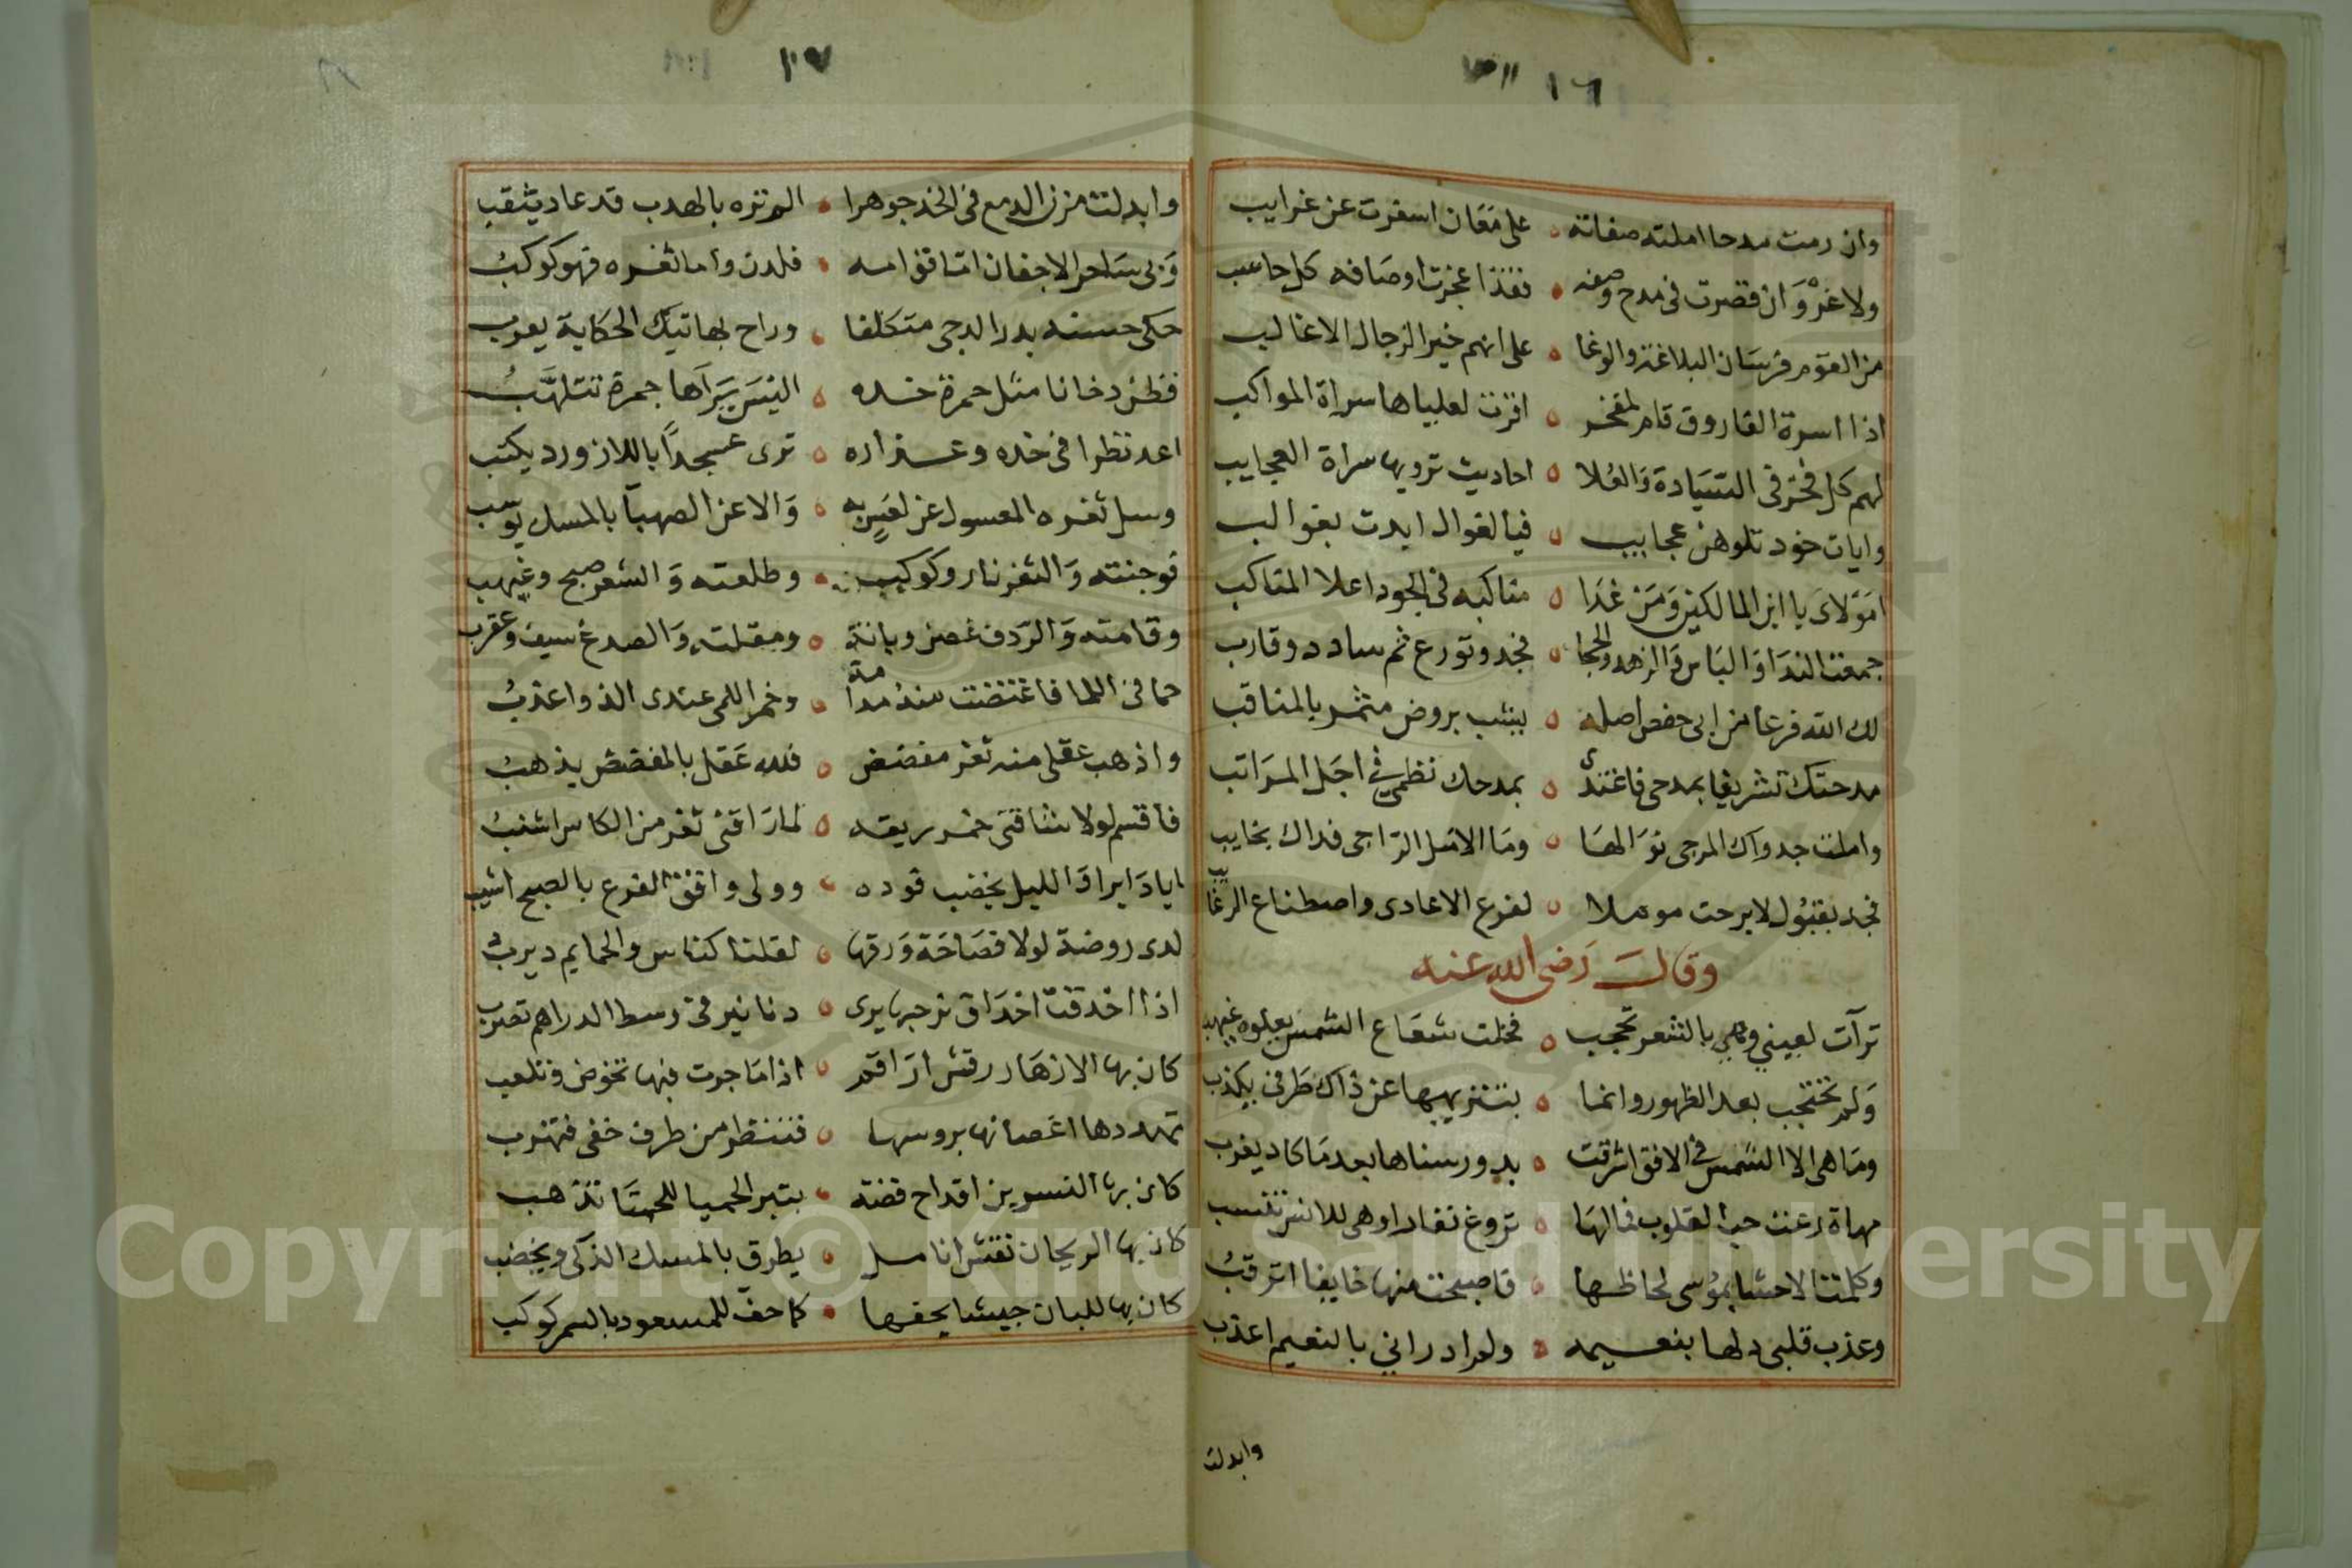 ١٦
وان رمت مدحا املته صفاته ٥ على معان اسفرت عن غرايب
ولا غرو ان قصرت في مدح وصفه ٥ فقد اعجزت اوصافه كل حاسب
من القوم فرسان البلاغة والوغا ٥ على انهم خير الرجال الاغالب
اذا اسرة الفاروق قام لمفخر ٥ اقرت لعلياها سراة المواكب
لهم كل فخر في السيادة والعلا ٥ احاديث ترويها سراة العجايب
وايات جود تلوهن عجايب ٥ فيا لغوال ايدت بغوالب
امولاى يا ابن المالكين ومن غدا ٥ مناكبه في الجود اعلا المناكب
جمعت الندا والباس والزهد والحجا ٥ فجد وتورع ثم سادد وقارب
لك الله فرعا من ابى حفص اصله ٥ بروض مثمر بالمناقب
مدحتك تشريفا بمدحى فاغتدى ٥ بمدحك نظمي في اجل المراتب
واملت جدواك المرجى ٥ وما الامل الراجى فداك بخايب
فجد بقبول لا برحت موملا ٥ لفرع الاعادى واصطناع الرغايب
وقال رضى الله عنه
ترآت لعيني وهي بالشعر تحجب ٥ فخلت شعاع الشمس يعلوه غيهب
ولم تحتجب بعد الظهور وانما ٥ عن ذاك طرفى يكذب
وما هى الا الشمس في الافق اشرقت ٥ بدور سناها بعد ما كاد يغرب
مهاة رعت حب القلوب فما لها ٥ تروغ نفارا وهى للانس تنسب
وكلمت الاحشا بموسى لحاظها ٥ فاصبحت منها خايفا اترقب
وعذب قلبى دلها بنعيمه ٥ ولم ادر اني بالنعيم اعذب
وابدلت
١٧
وابدلت مزن الدمع في الخد جوهرا ٥ الم تره بالهدب قد عاد يثقب
وبى ساحر الاجفان اما قوامه ٥ فلدن واما ثغره فهو كوكب
حكى حسنه بدر الدجى متكلفا ٥ وراح بهاتيك الحكاية يعرب
فظن دخانا مثل حمرة خده ٥ اليس يراها جمرة تتلهب
اعد نظرا في خده وعذاره ٥ ترى عسجدا باللازورد يكتب
وسل ثغره المعسول عن لعس به ٥ والا عن الصهبا بالمسك
فوجنته والثغر نار وكوكب ٥ وطلعته والشعر صبح وغيهب
وقامته والردف غصن وبانة ٥ ومقلته والصدغ سيف وعقرب
حمانى اللما فاعتضت منه مدامة ٥ وخمر اللمى عندى الذ واعذب
واذهب عقلى منه ثغر مفضض ٥ فلله عقل بالمفضض يذهب
فاقسم لولا شاقنى خمر ريقه ٥ لما راقنى ثغر من الكاس اشنب
ايادايرا والليل يخضب فوده ٥ وولى الفرع بالصبح اشيب
لدى روضة لولا فصاحة ورقها ٥ لقلنا كناس والحمايم ديرب
اذا احدقت احداق نرجسها يرى ٥ دنانير في وسط الدراهم تضرب
كان بها الازهار رقش اراقم ٥ اذا ما جرت فيها تخوض وتلعب
تهددها اغصانها بروسها ٥ فتنظر من طرف خفى فتهرب
كان بها النسرين اقداح فضة ٥ بتبر الحميا تذهب
كان بها الريحان نقش انامل ٥ يطرق بالمسك الذكى ويخضب
كان بها للبان جيشا يحفها ٥ كما حف للمسعود بالسمر كوكب
Copyright © King Saud University